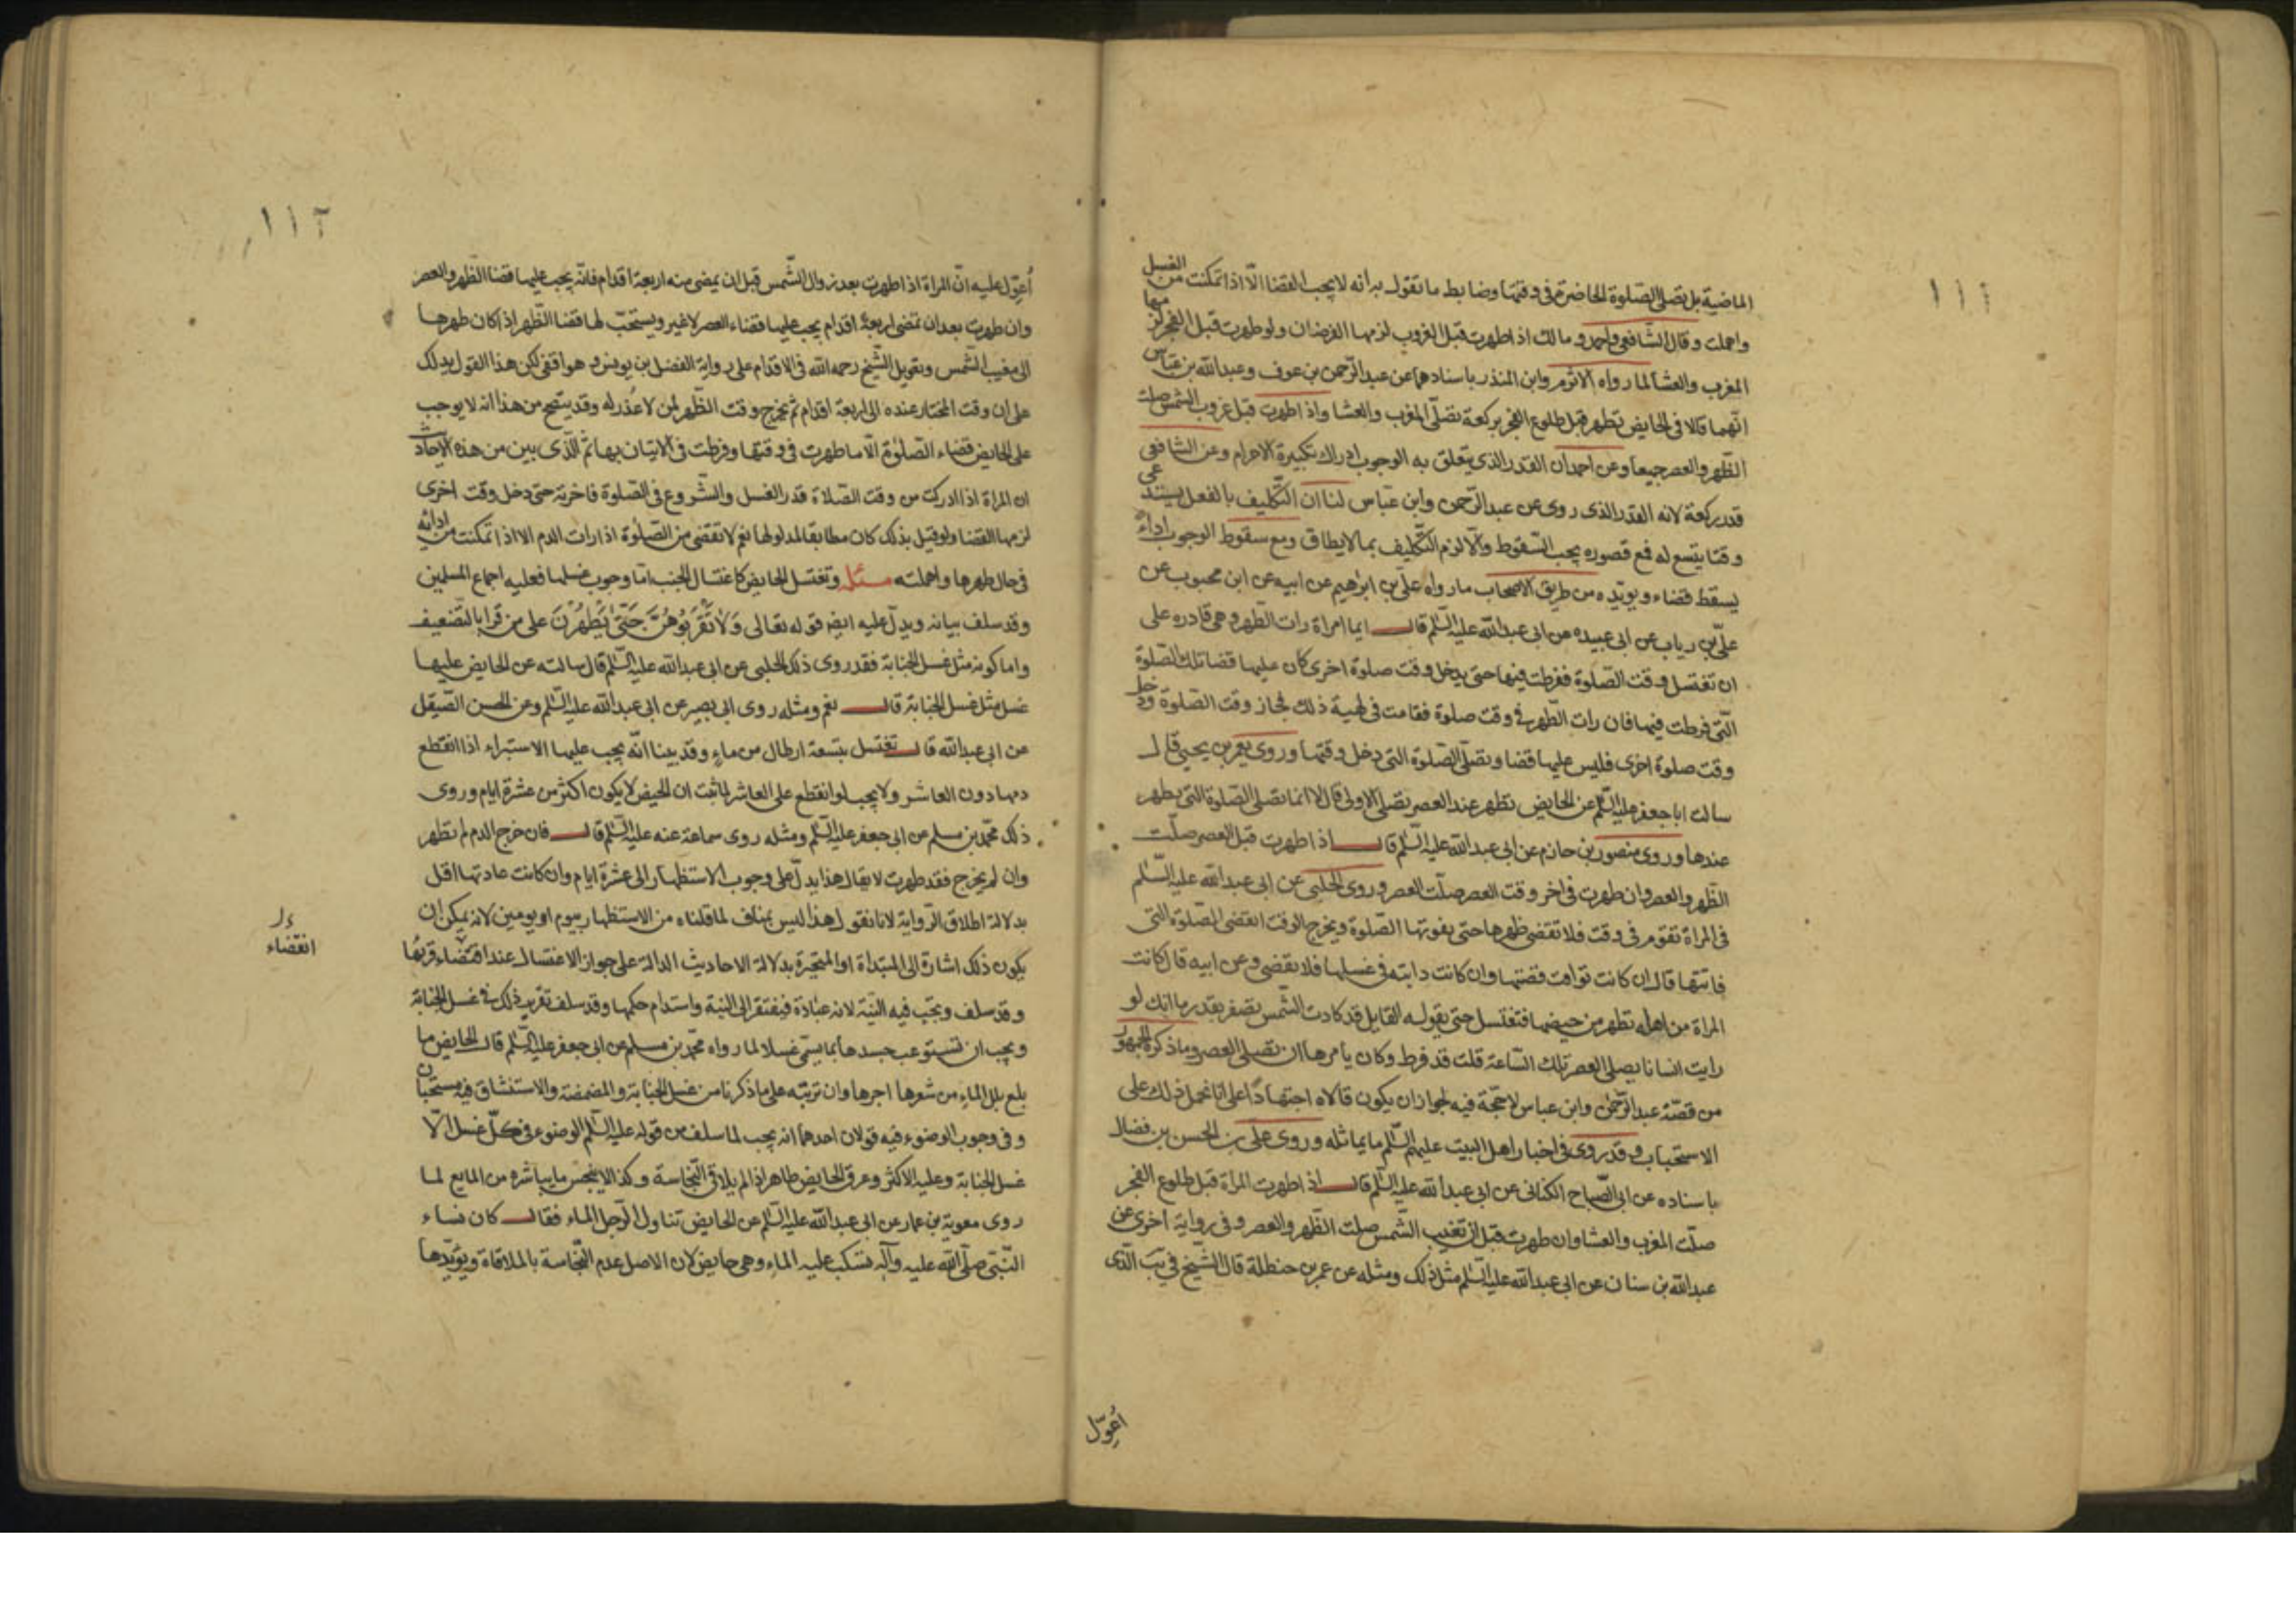 ١١١
الماضية بل تصلى الصلوة الحاضرة فى وقتها وضابط ما تقول به انه لا يجب القضا الّا اذا تمكنت من الغسل
واهملت وقال الشافعى واحمد ومالك اذا طهرت قبل الغروب لزمها الفرضان ولو طهرت قبل الفجر لزمها
المغرب والعشا لما رواه الاثرم وابن المنذر باسنادهما عن عبد الرّحمن بن عوف وعبد الله بن عبّاس
انّهما قالا فى الحايض تطهر قبل طلوع الفجر بركعة تصلّى المغرب والعشا واذا طهرت قبل غروب الشمس صلت
الظهر والعصر جميعا وعن احمد ان القدر الذى يتعلق به الوجوب ادراك تكبيرة الاحرام وعن الشافعى
قدر ركعة لانه القدر الذى روى عن عبد الرّحمن وابن عبّاس لنا ان التّكليف بالفعل يستدعى
وقتا يتسع له فمع قصوره يجب السّقوط والّا لزم التّكليف بما لا يطاق ومع سقوط الوجوب اداءً
يسقط قضاء ويويّده من طريق الاصحاب ما رواه علىّ بن ابرهيم عن ابيه عن ابن محبوب عن
علىّ بن رياب عن ابى عبيده عن ابى عبد الله عليه السّلم قال ايما امراة رات الطّهر وهى قادره على
ان تغتسل وقت الصّلوة ففرطت فيها حتى يدخل وقت صلوة اخرى كان عليها قضا تلك الصّلوة
التّى فرطت فيها فان رات الطّهر فى وقت صلوة فقامت فى تهية ذلك فجاز وقت الصّلوة ودخل
وقت صلوة اخرى فليس عليها قضا وتصلّى الصّلوة التى دخل وقتها وروى معمر بن يحيى قال
سالت ابا جعفر عليه السّلم عن الحايض تطهر عند العصر تصلّى الاولى قال لا انما تصلى الصّلوة التى تطهر
عندها وروى منصور بن حازم عن ابى عبد الله عليه السّلم قال اذا طهرت قبل العصر صلّت
الظّهر والعصر وان طهرت فى اخر وقت العصر صلّت العصر وروى الحلبى عن ابى عبد الله عليه السّلم
فى المراة تقوم فى وقت فلا تقضى ظهرها حتى يفوتها الصّلوة ويخرج الوقت اتقضى الصّلوة التى
فاتتها قال ان كانت توانت قضتها وان كانت دايته فى غسلها فلا تقضى وعن ابيه قال كانت
المراة من اهله تطهر من حيضها فتغتسل حتى يقول القايل قد كادت الشّمس تصفر بقدر ما انك لو
رايت انسانا يصلى العصر تلك السّاعة قلت قد فرط وكان يامرها ان تصلى العصر وما ذكره الجمهور
من قصّة عبد الرّحمن وابن عباس لا حجّة فيه لجواز ان يكون قالاه اجتهادًا على انا نحمل ذلك على
الاستحباب وقد روى فى اخبار اهل البيت عليهم السّلم ما يماثله وروى على بن الحسن بن فضال
باسناده عن ابى الصّباح الكنانى عن ابى عبد الله عليه السّلم قال اذا طهرت المراة قبل طلوع الفجر
صلّت المغرب والعشا وان طهرت قبل ان تغيب الشّمس صلت الظّهر والعصر وفى رواية اخرى عن
عبد الله بن سنان عن ابى عبد الله عليه السّلم مثل ذلك ومثله عن عمر بن حنظلة قال الشّيخ فى يب الّذى
اُعَوّل
١١٢
اُعوّل عليه انّ المراة اذا طهرت بعد زوال الشّمس قبل ان يمضى منه اربعة اقدام فانّه يجب عليها قضا الظهر والعصر
وان طهرت بعد ان تمضى اربعة اقدام يجب عليها قضاء العصر لا غير ويستحبّ لها قضا الظّهر اذا كان طهرها
الى مغيب الشّمس وتعويل الشّيخ رحمه الله فى الاقدام على رواية الفضل بن يونس وهو اقفى لكن هذا القول يدلك
على ان وقت المختار عنده الى اربعة اقدام ثم يخرج وقت الظّهر لمن لا عذر له وقد ينتج من هذا انه لا يوجب
على الحايض قضاء الصّلوة الّا ما طهرت فى وقتها وفرطت فى الاتيان بها ثم الّذى يبين من هذه الاحاديث
ان المراة اذا ادركت من وقت الصّلاة قدر الغسل والشّروع فى الصّلوة فاخرته حتى دخل وقت اخرى
لزمها القضا ولو قيل بذلك كان مطابقا لمدلولها نعم لا تقضى من الصّلوة اذا رات الدم الا اذا تمكنت من ادائه
فى حال طهرها واهملته مسئلة وتغتسل الحايض كاغتسال الجنب امّا وجوب غسلها فعليه اجماع المسلمين
وقد سلف بيانه ويدلّ عليه ايضا قوله تعالى وَلَا تَقْرَبُوهُنَّ حَتَّىٰ يَطْهُرْنَ على من قرا بالتّضعيف
واما كونه مثل غسل الجنابة فقد روى ذلك الحلبى عن ابى عبد الله عليه السّلم قال سالته عن الحايض عليها
غسل مثل غسل الجنابة قال نعم ومثله روى ابى بصير عن ابى عبد الله عليه السّلم وعن الحسن الصّيقل
عن ابى عبد الله قال تغتسل بتسعة ارطال من ماء وقد بينا انّه يجب عليها الاستبراء اذا انقطع
دمها دون العاشر ولا يجب لو انقطع على العاشر لما ثبت ان الحيض لا يكون اكثر من عشرة ايام وروى
ذلك محمّد بن مسلم عن ابى جعفر عليه السّلم ومثله روى سماعة عنه عليه السّلم قال فان خرج الدم لم تطهر
وان لم يخرج فقد طهرت لا يقال هذا يدلّ على وجوب الاستظهار الى عشرة ايام وان كانت عادتها اقل
بدلالة اطلاق الرّواية لانا نقول هذا ليس بمناف لما قلناه من الاستظهار بيوم او يومين لانه يمكن ان
يكون ذلك اشارة الى المبتداة او المتحيّرة بدلالة الاحاديث الدالة على جواز الاغتسال عند اقتضاء قروها
انقضاء
وقد سلف ويجب فيه النيّة لانه عبادة فيفتقر الى النية واستدام حكمها وقد سلف تقرير ذلك فى غسل الجنابة
ويجب ان تستوعب جسدها بما يسمّى غسلا لما رواه محمّد بن مسلم عن ابى جعفر عليه السّلم قال الحايض ما
بلغ بلل الماء من شعرها اجزها وان ترتبه على ما ذكرنا من غسل الجنابة والمضمضة والاستنشاق فيه مستحبان
وفى وجوب الوضوء فيه قولان احدهما انه يجب لما سلف من قوله عليه السّلم الوضوء فى كلّ غسل الّا
غسل الجنابة وعليه الاكثر وعرق الحايض طاهر اذا لم يلاقى النّجاسة وكذا لا ينجس ما يباشره من المايع لما
روى معوية بن عمار عن ابى عبد الله عليه السّلم عن الحايض تناول الرّجل الماء فقال كان نساء
النّبىّ صلّى الله عليه وآله تسكب عليه الماء وهى حايض لان الاصل عدم النّجاسة بالملاقاة ويؤيّدها